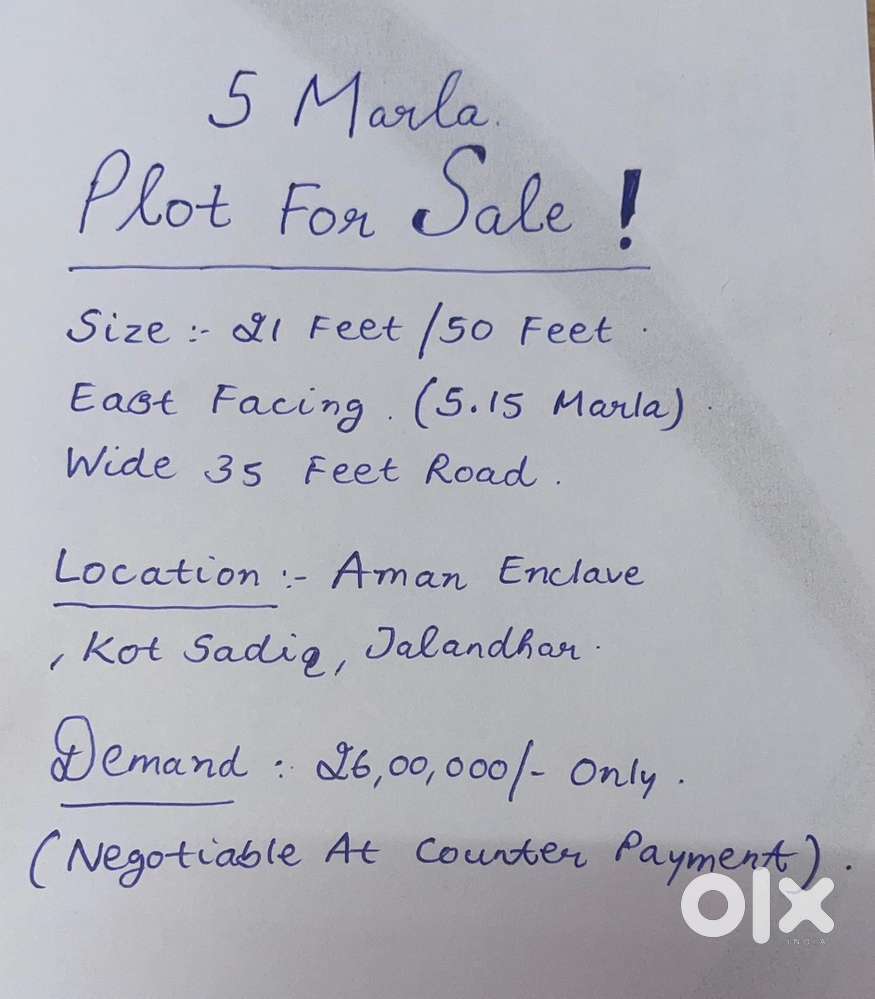 5 Marla.
Plot For Sale !
Size :- 21 Feet /50 Feet .
East Facing . (5.15 Marla) .
Wide 35 Feet Road .
Location :- Aman Enclave
, Kot Sadiq, Jalandhar .
Demand : 26,00,000/- Only .
(Negotiable At Counter Payment) .
olx
INDIA